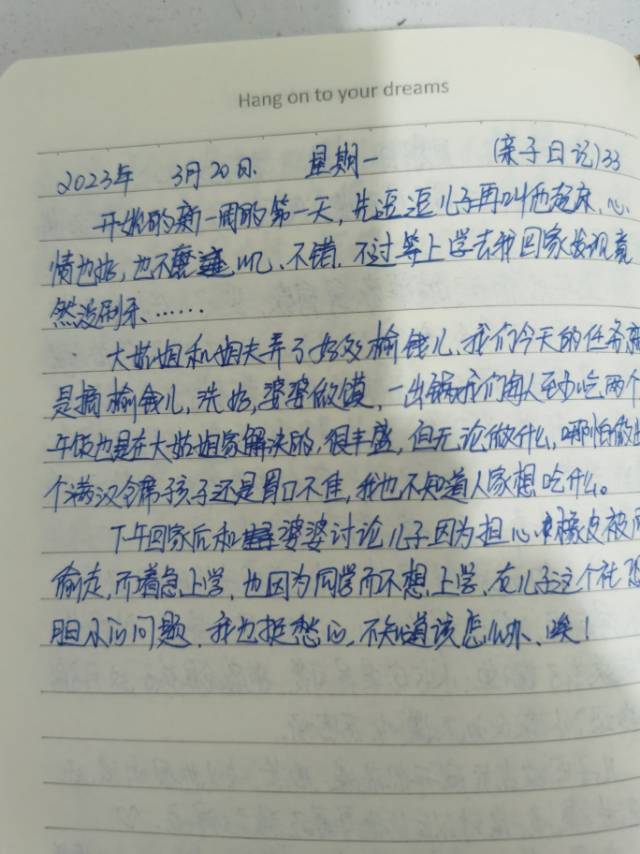 Hang on to your dreams
2023年 3月20日. 星期一 (亲子日记)33
开始的新一周的第一天,先逗逗儿子再叫他起床,心
情也好,也不磨蹭,不错,不过等上学去我回家发现竟
然没刷牙、……
大姑姐和姐夫弄了好多榆钱儿、我们今天的任务就
是摘榆钱儿,洗好,婆婆做馍,一出锅我们每人至少吃两个
午饭也是在大姑姐家解决的,很丰盛,但无论做什么,哪怕做出
个满汉全席孩子还是胃口不佳,我也不知道人家想吃什么。
下午回家后和婆婆讨论儿子因为担心橡皮被同
偷走,而着急上学,也因为同学而不想上学、在儿子这个社恐
胆小的问题、我也挺愁的,不知道该怎么办、唉!